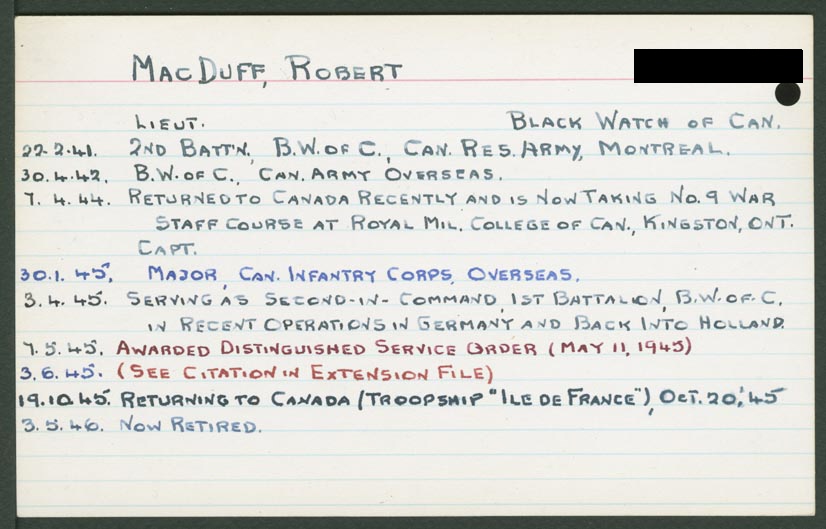 MACDUFF, ROBERT
LIEUT. BLACK WATCH OF CAN.
22.2.41. 2ND BATT'N., B.W. OF C., CAN. RES. ARMY, MONTREAL.
30.4.42. B.W. OF C., CAN. ARMY OVERSEAS.
7. 4. 44. RETURNED TO CANADA RECENTLY AND IS NOW TAKING NO. 9 WAR
STAFF COURSE AT ROYAL MIL. COLLEGE OF CAN., KINGSTON, ONT.
CAPT.
30.1. 45. MAJOR, CAN. INFANTRY CORPS, OVERSEAS.
3. 4. 45. SERVING AS SECOND-IN-COMMAND, 1ST BATTALION, B.W. OF C.
IN RECENT OPERATIONS IN GERMANY AND BACK INTO HOLLAND.
7. 5. 45. AWARDED DISTINGUISHED SERVICE ORDER (MAY 11, 1945)
3. 6. 45. (SEE CITATION IN EXTENSION FILE)
19.10.45. RETURNING TO CANADA (TROOPSHIP "ILE DE FRANCE"), OCT. 20,'45
3. 5. 46. NOW RETIRED.